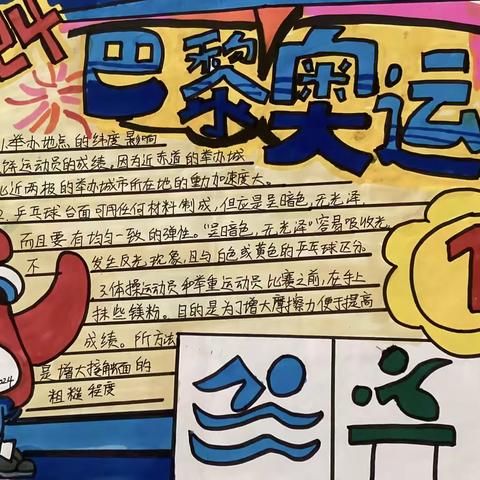 24
巴黎奥运
1.举办地点的纬度影响
运动员的成绩,因为近赤道的举办城
比近两极的举办城市所在地的重力加速度大。
2.乒乓球台面可用任何材料制成,但应是呈暗色,无光泽
而且要有均匀一致的弹性。“呈暗色,无光泽”容易吸收光,
不发生反光现象,且与白色或黄色的乒乓球区分。
3.体操运动员和举重运动员比赛之前,在手上
抹些镁粉。目的是为了增大摩擦力便于提高
成绩。所方法
是增大接触面的
粗糙程度
1
2024